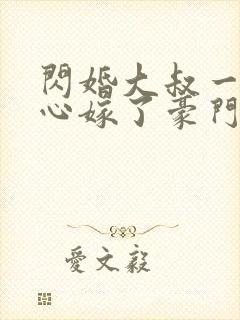 閃婚大叔一
心嫁了豪門
愛文毅